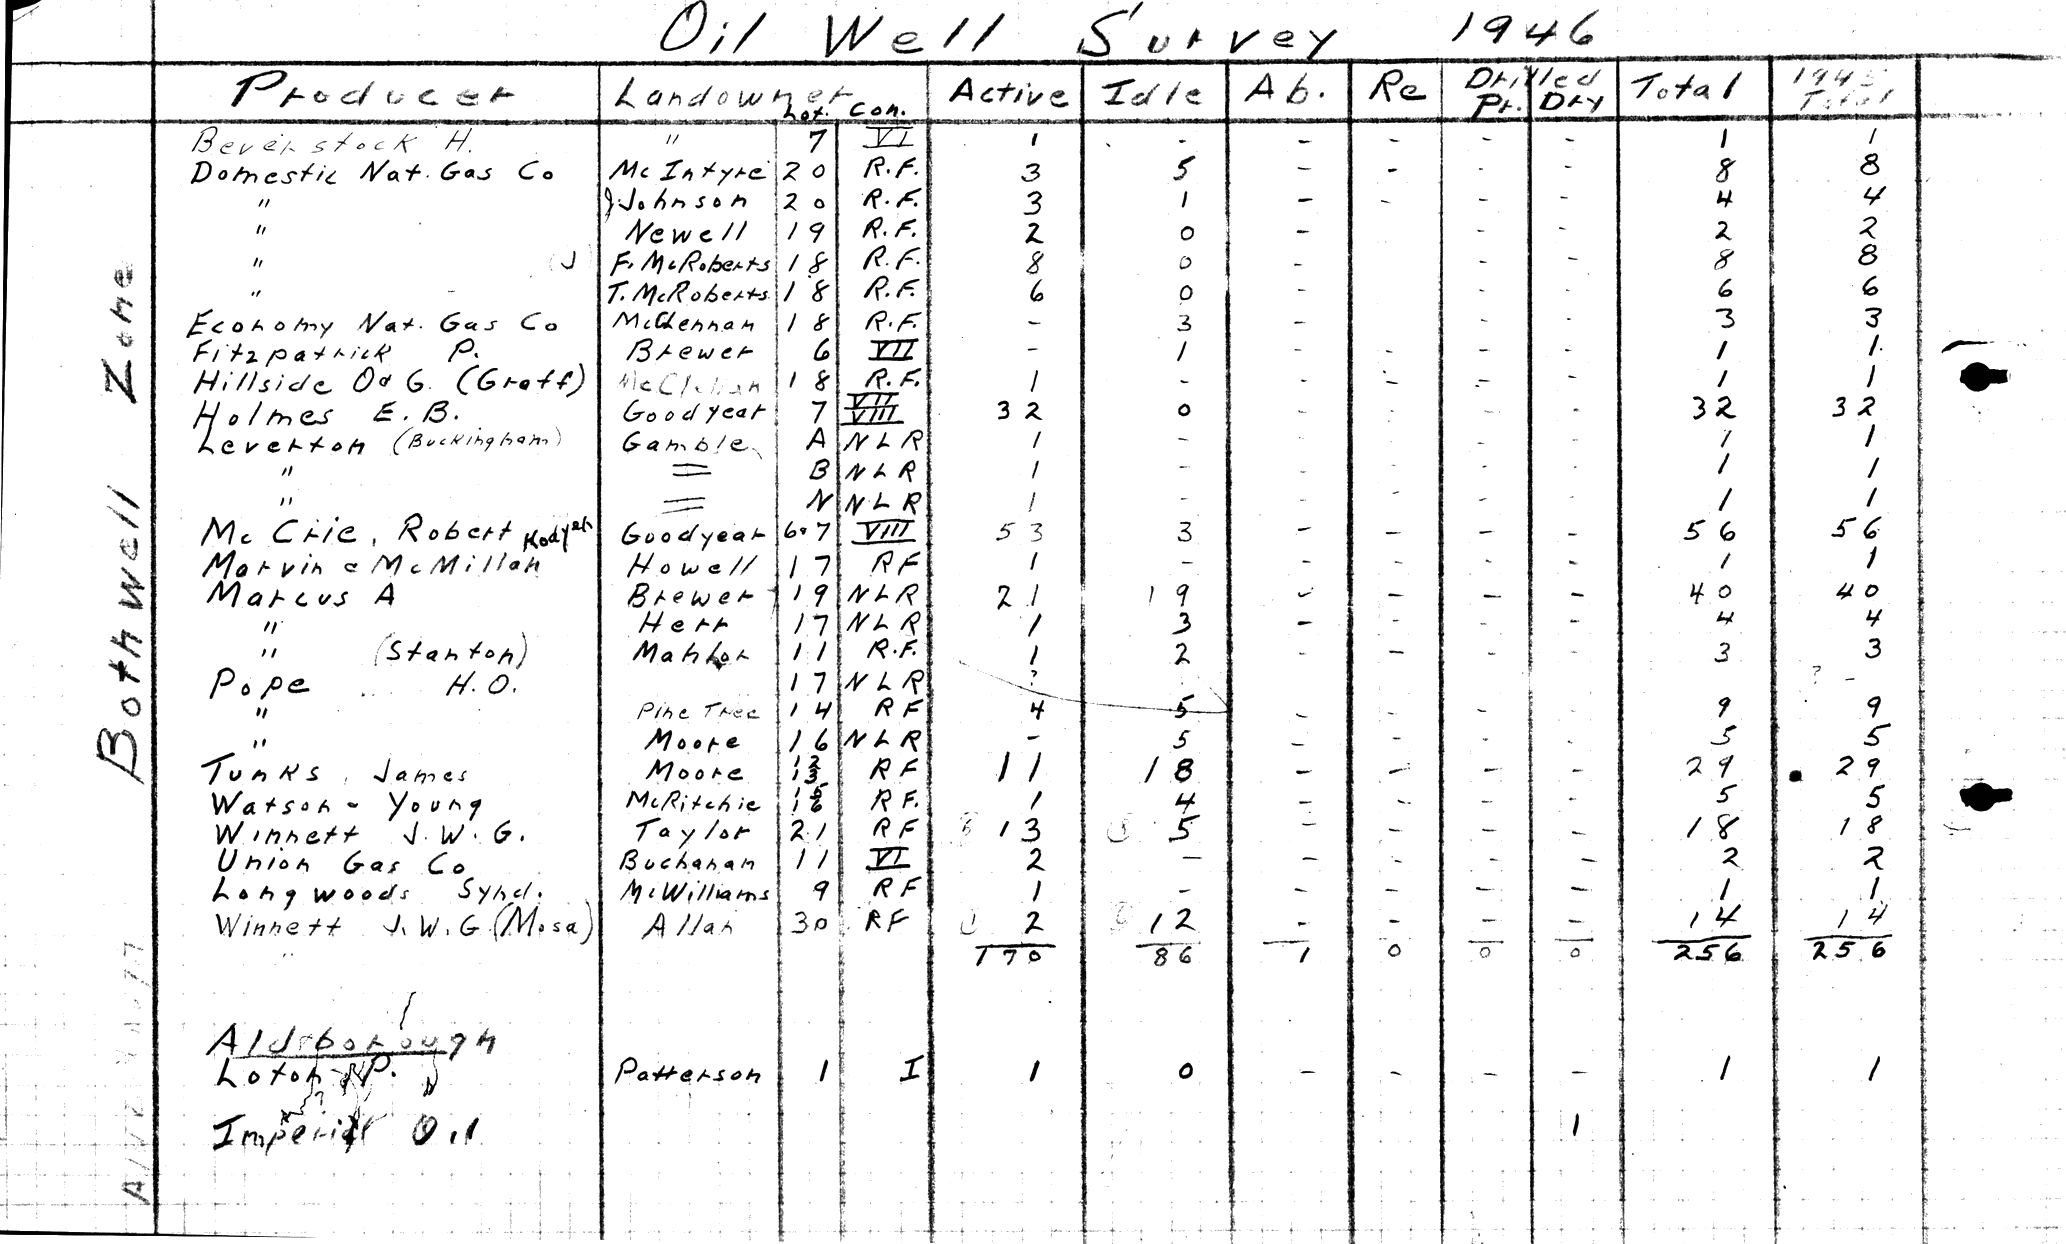 Oil Well Survey 1946
Producer Landowner Lot. Con. Active Idle Ab. Re Drilled Pr. Dry Total 1945 Total
Beverstock H. " 7 VI 1 - - - - - 1 1
Domestic Nat. Gas Co McIntyre 20 R.F. 3 5 - - - - 8 8
" J. Johnson 20 R.F. 3 1 - - - - 4 4
" Newell 19 R.F. 2 0 - - - 2 2
" F. McRoberts 18 R.F. 8 0 - - - 8 8
" T. McRoberts 18 R.F. 6 0 - - - 6 6
Economy Nat. Gas Co McLennan 18 R.F. - 3 - - - 3 3
Fitzpatrick P. Brewer 6 VII - 1 - - - - 1 1
Hillside O & G. (Graff) 18 R.F. 1 - - - - - 1 1
Holmes E. B. Goodyear 7 VII VIII 32 0 - - - - 32 32
Leverton (Buckingham) Gamble A NLR 1 - - - - - 1 1
" = B NLR 1 - - - - - 1 1
" = N NLR 1 - - - - - 1 1
Mc Crie, Robert Kodyer Goodyear 6+7 VIII 53 3 - - - - 56 56
Marvin & McMillan Howell 17 RF 1 - - - - - 1 1
Marcus A Brewer 19 NLR 21 19 - - - - 40 40
" Herr 17 NLR 1 3 - - - - 4 4
" (Stanton) 11 R.F. 1 2 - - - - 3 3
Pope H.O. 17 NLR ? ? -
" Pine Tree 14 RF 4 5 - - - - 9 9
" Moore 16 NLR - 5 - - - - 5 5
Tunks, James Moore 12 13 RF 11 18 - - - - 29 29
Watson - Young McRitchie 15 16 RF. 1 4 - - - - 5 5
Winnett J. W. G. Taylor 21 RF 13 5 - - - - 18 18
Union Gas Co Buchanan 11 VI 2 - - - - - 2 2
Longwoods Synd. McWilliams 9 RF 1 - - - - - 1 1
Winnett J. W. G (Mosa) Allan 30 RF 2 12 - - - - 14 14
170 86 1 0 0 0 256 256
Aldsborough
Loton P. Patterson 1 I 1 0 - - - - 1 1
Imperial Oil 1
Bothwell Zone